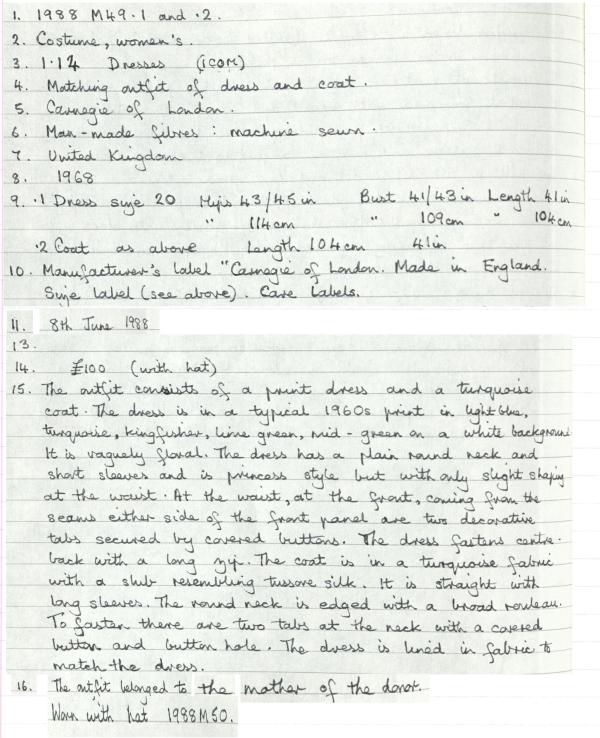 1. 1988 M49.1 and .2.
2. Costume, women's.
3. 1.12 Dresses (ICOM)
4. Matching outfit of dress and coat.
5. Carnegie of London.
6. Man-made fibres : machine sewn.
7. United Kingdom
8. 1968
9. .1 Dress size 20 Hips 43/45 in Bust 41/43 in Length 41in
" 114cm " 109cm " 104cm
.2 Coat as above Length 104cm 41in
10. Manufacturer's label "Carnegie of London. Made in England.
Size label (see above). Care Labels.
11. 8th June 1988
13.
14. £100 (with hat)
15. The outfit consists of a print dress and a turquoise
coat. The dress is in a typical 1960s print in light blue,
turquoise, kingfisher, lime green, mid-green on a white background.
It is vaguely floral. The dress has a plain round neck and
short sleeves and is princess style but with only slight shaping
at the waist. At the waist, at the front, coming from the
seams either side of the front panel are two decorative
tabs secured by covered buttons. The dress fastens centre-
back with a long zip. The coat is in a turquoise fabric
with a slub resembling tussore silk. It is straight with
long sleeves. The round neck is edged with a broad rouleau.
To fasten there are two tabs at the neck with a covered
button and button hole. The dress is lined in fabric to
match the dress.
16. The outfit belonged to the mother of the donor.
Worn with hat 1988M50.